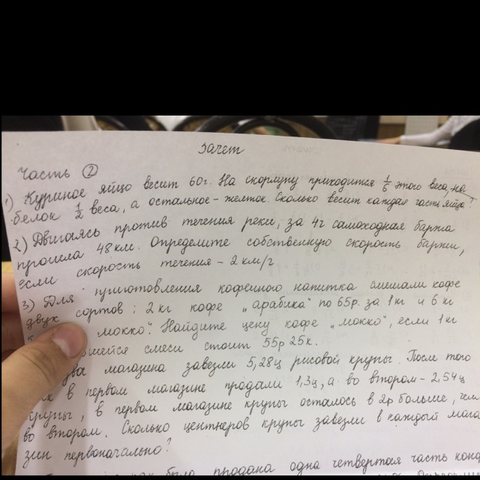 Зачет
Часть ②
1) Куриное яйцо весит 60г. На скорлупу приходится 1/5 этого веса, на
белок 1/2 веса, а остальное - желток. Сколько весит каждая часть яйца?
2) Двигаясь против течения реки, за 4ч самоходная баржа
прошла 48 км. Определите собственную скорость баржи,
если скорость течения - 2 км/ч
3) Для приготовления кофейного напитка смешали кофе
двух сортов: 2 кг кофе „арабика" по 65р. за 1 кг и 6 кг
„мокко". Найдите цену кофе „мокко", если 1 кг
смеси стоит 55р 25к.
два магазина завезли 5,28ц рисовой крупы. После того
в первом магазине продали 1,3ц, а во втором - 2,54ц
крупы, в первом магазине крупы осталось в 2р больше, чем
во втором. Сколько центнеров крупы завезли в каждый мага-
зин первоначально?
была продана одна четвертая часть